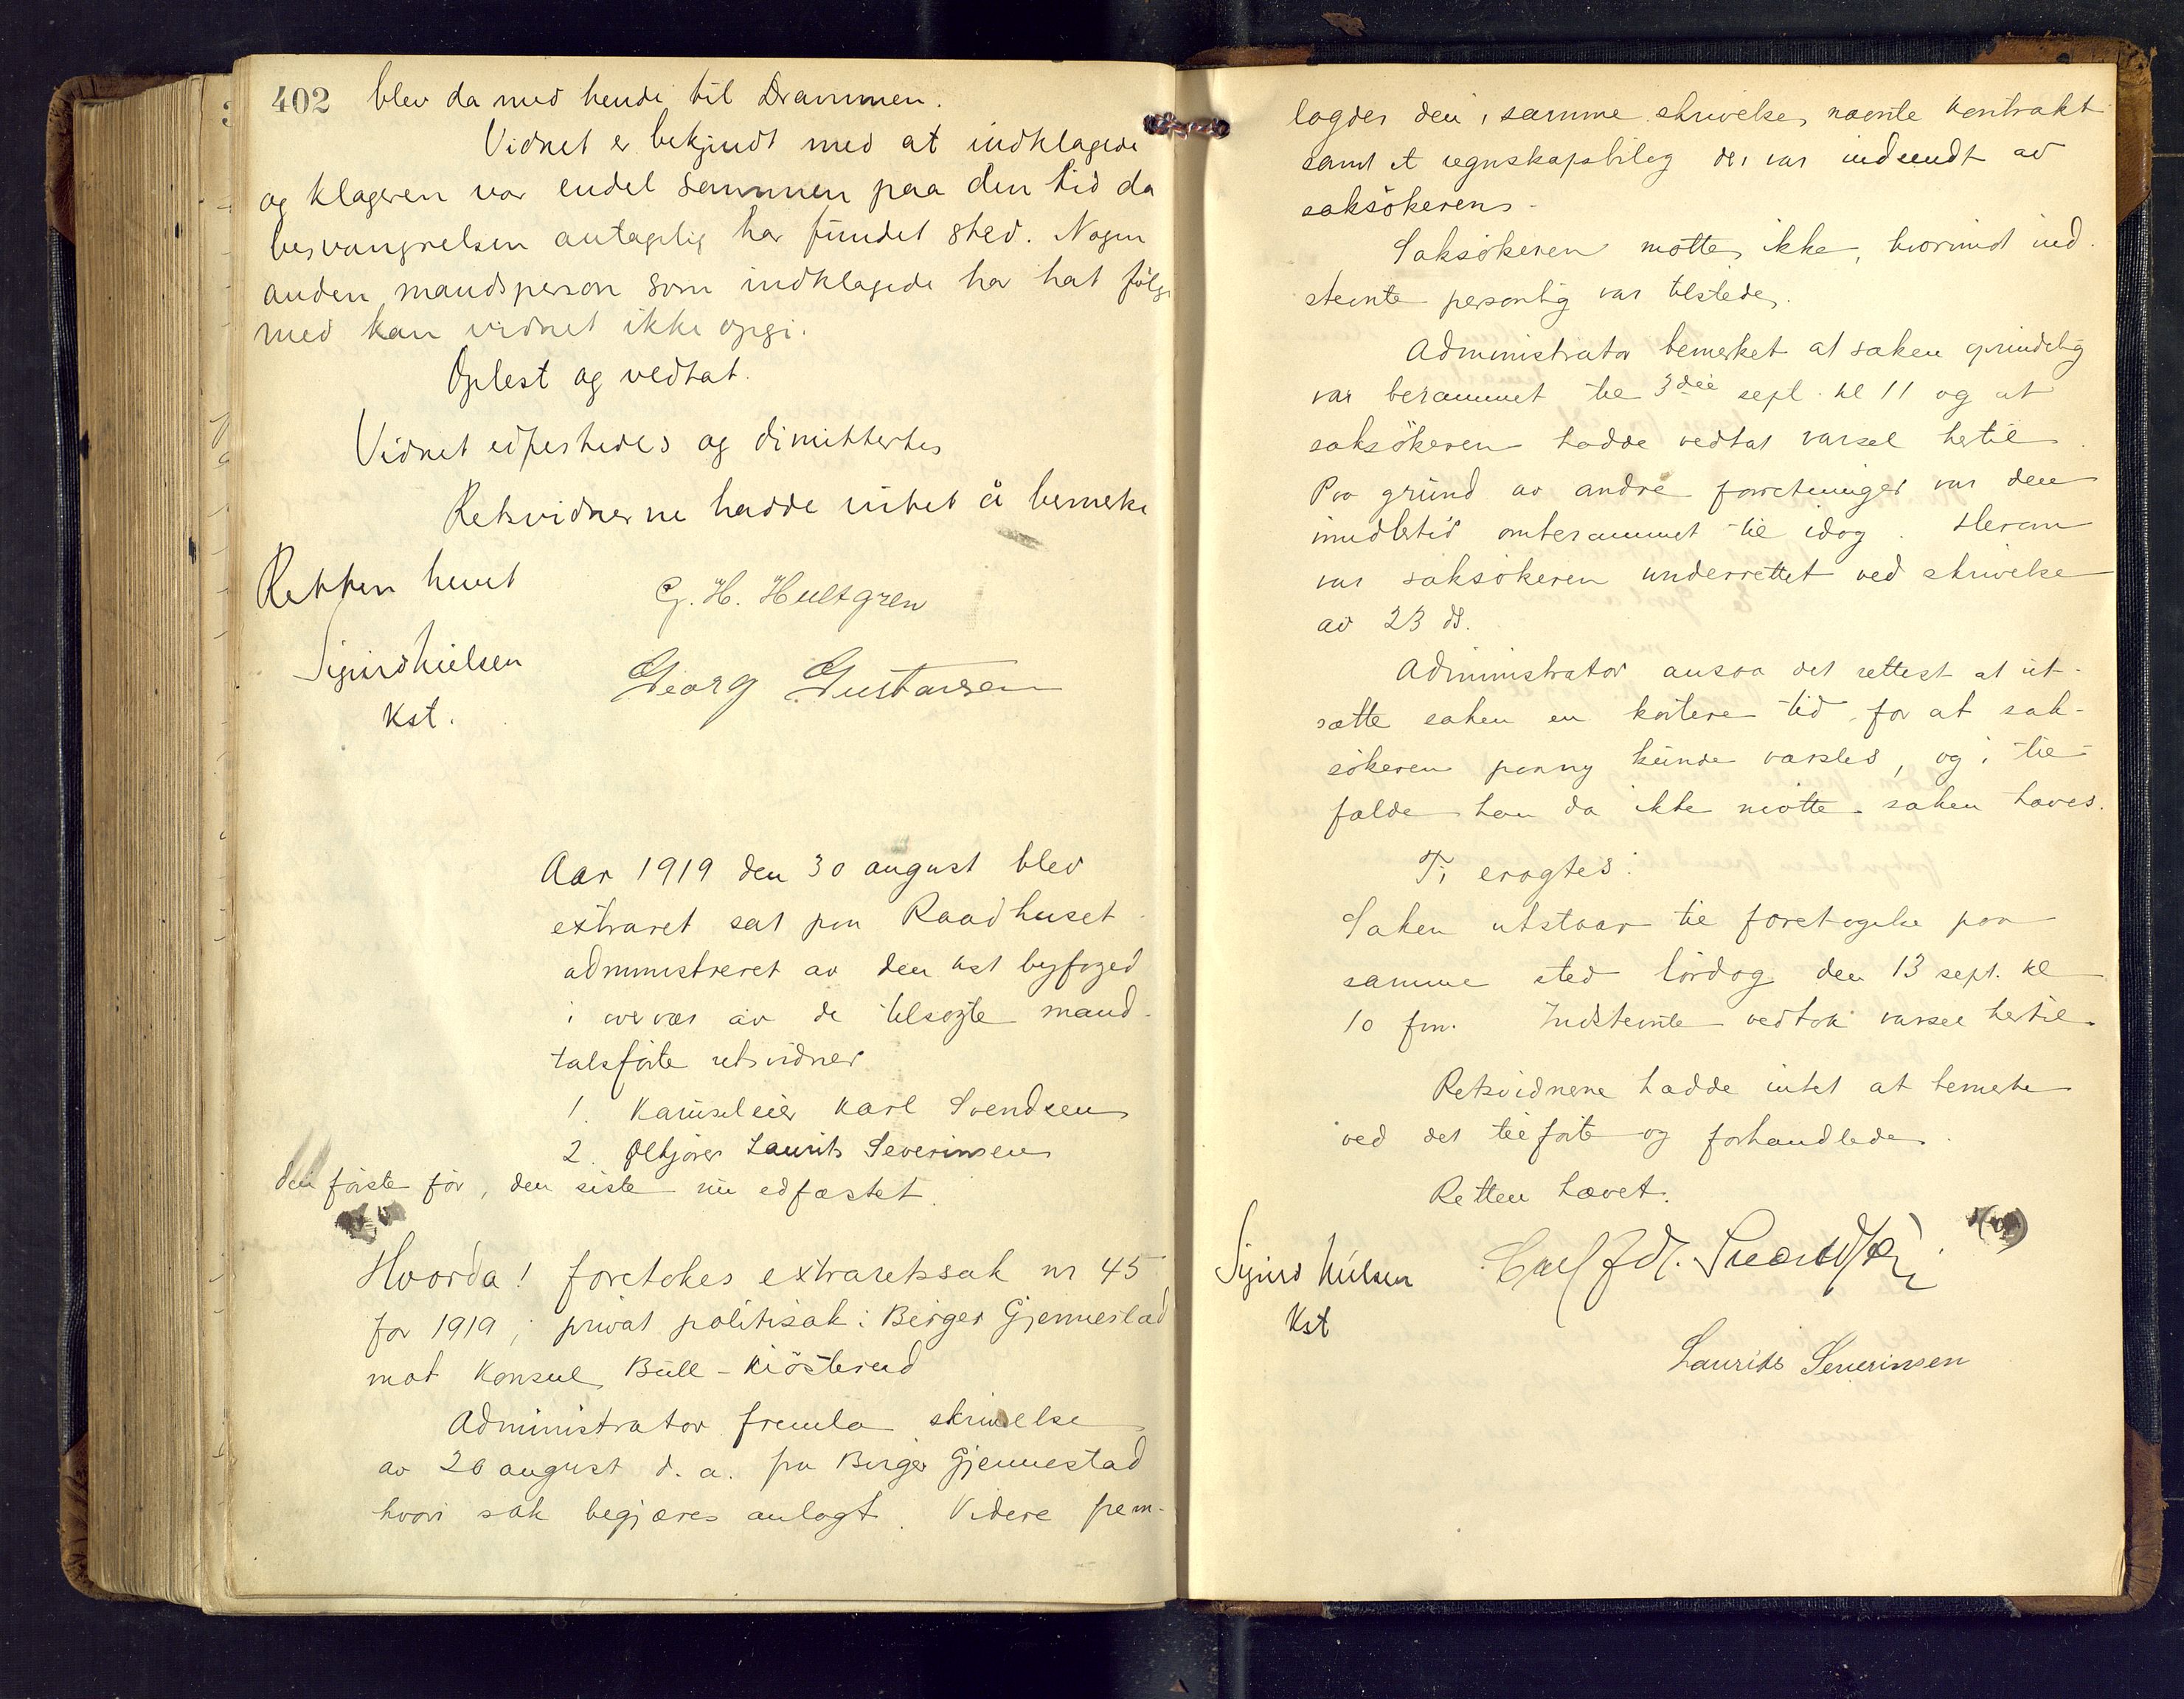 402 blev da med hende til Drammen.
Vidnet er bekjendt med at indklagede
og klageren var endel sammen paa den tid da
besvangrelsen antagelig har fundet sted. Nogen
anden mandsperson som indklagede har hat følge
med kan vidnet ikke opgi.
Oplest og vedtat.
Vidnet edfestedes og dimittertes
Retsvidnerne hadde intet å bemerke
Retten hevet
G. H. Hultgren
Sigurd Nielsen
Georg Gustavsen
Kst.
Aar 1919 den 30 august blev
extraret sat paa Raadhuset
administreret av den kst byfoged
i overvær av de tilsagte mand-
talsførte retsvidner
1. Karuseleier Karl Svendsen
2. Ølkjører Laurits Severinsen
den første før, den siste nu edfæstet.
Hvorda! foretokes extraretssak nr 45
for 1919, privat politisak: Birger Gjennestad
mot Konsul Bull-Kiøsterud
Administrator fremla skrivelse
av 20 august d. a. fra Birger Gjennestad
hvori sak begjæres anlagt. Videre frem-
lagdes den i samme skrivelse nævnte kontrakt
samt et regnskapsbilag der var indsendt av
saksøkeren.
Saksøkeren møtte ikke, hvorimot ind-
stevnte personlig var tilstede.
Administrator bemerket at saken oprindelig
var berammet til 3die sept. kl 11 og at
saksøkeren hadde vedtat varsel hertil.
Paa grund av andre forretninger var den
imidlertid omberammet til idag. Herom
var saksøkeren underrettet ved skrivelse
av 23 ds.
Administrator ansaa det rettest at ut-
sætte saken en kortere tid for at sak-
søkeren paany kunde varsles, og i til-
fælde han da ikke møtte saken hæves.
Ti eragtes:
Saken utstaar til foretagelse paa
samme sted lørdag den 13 sept. kl
10 fm. Indstevnte vedtok varsel hertil.
Retsvidnene hadde intet at bemerke
ved det tilførte og forhandlede.
Retten hævet.
Sigurd Nielsen
Carl Fdr. Svendsen
Kst
Laurits Severinsen